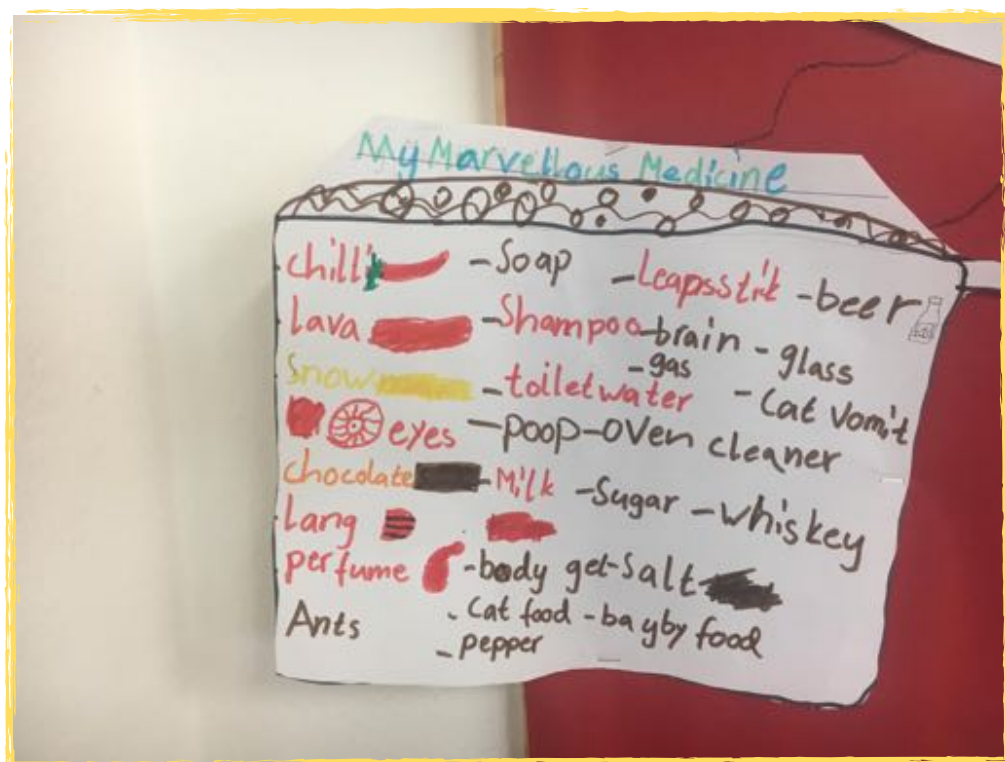 My Marvellous Medicine
chilli -Soap -Leapsstik -beer
lava -Shampoo -brain -glass
-gas
Snow -toiletwater -Cat Vomit
eyes -poop-oven cleaner
chocolate -Milk -Sugar -whiskey
Lang
perfume -body get-Salt
Ants -Cat food -bayby food
-pepper